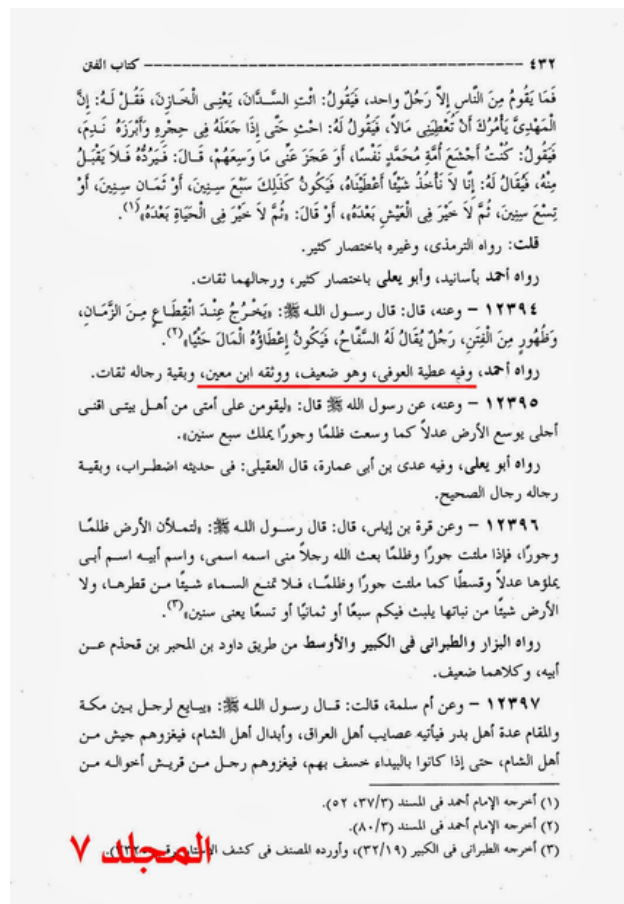 ٤٣٢ ---------------------------------------- كتاب الفتن
فَمَا يَقُومُ مِنَ النَّاسِ إِلاَّ رَجُلٌ واحد، فَيَقُولُ: ائْتِ السَّدَّانَ، يَعْنِى الْخَازِنَ، فَقُلْ لَهُ: إِنَّ
الْمَهْدِىَّ يَأْمُرُكَ أَنْ تُعْطِيَنِى مَالاً، فَيَقُولُ لَهُ: احْثِ حَتَّى إِذَا جَعَلَهُ فِى حِجْرِهِ وَأَبْرَزَهُ نَدِمَ،
فَيَقُولُ: كُنْتُ أَجْشَعَ أُمَّةِ مُحَمَّدٍ نَفْسًا، أَوَ عَجَزَ عَنِّى مَا وَسِعَهُمْ، قَالَ: فَيَرُدُّهُ فَلاَ يَقْبَلُ
مِنْهُ، فَيُقَالُ لَهُ: إِنَّا لاَ نَأْخُذُ شَيْئًا أَعْطَيْنَاهُ، فَيَكُونُ كَذَلِكَ سَبْعَ سِنِينَ، أَوْ ثَمَانِ سِنِينَ، أَوْ
تِسْعَ سِنِينَ، ثُمَّ لاَ خَيْرَ فِى الْعَيْشِ بَعْدَهُ»، أَوْ قَالَ: «ثُمَّ لاَ خَيْرَ فِى الْحَيَاةِ بَعْدَهُ»(١).
قلت: رواه الترمذى، وغيره باختصار كثير.
رواه أحمد بأسانيد، وأبو يعلى باختصار كثير، ورجالهما ثقات.
١٢٣٩٤ – وعنه، قال: قال رسول الله ﷺ: «يَخْرُجُ عِنْدَ انْقِطَاعٍ مِنَ الزَّمَانِ،
وَظُهُورٍ مِنَ الْفِتَنِ، رَجُلٌ يُقَالُ لَهُ السَّفَّاحُ، فَيَكُونُ إِعْطَاؤُهُ الْمَالَ حَثْيًا»(٢).
رواه أحمد، وفيه عطية العوفى، وهو ضعيف، ووثقه ابن معين، وبقية رجاله ثقات.
١٢٣٩٥ – وعنه، عن رسول الله ﷺ قال: «ليقومن على أمتى من أهل بيتى اقنى
أجلى يوسع الأرض عدلاً كما وسعت ظلمًا وجورًا يملك سبع سنين».
رواه أبو يعلى، وفيه عدى بن أبى عمارة، قال العقيلى: فى حديثه اضطراب، وبقية
رجاله رجال الصحيح.
١٢٣٩٦ – وعن قرة بن إياس، قال: قال رسول الله ﷺ: «لتملأن الأرض ظلمًا
وجورًا، فإذا ملئت جورًا وظلمًا بعث الله رجلاً منى اسمه اسمى، واسم أبيه اسم أبى
يملؤها عدلاً وقسطًا كما ملئت جورًا وظلمًا، فلا تمنع السماء شيئًا من قطرها، ولا
الأرض شيئًا من نباتها يلبث فيكم سبعًا أو ثمانيًا أو تسعًا يعنى سنين»(٣).
رواه البزار والطبرانى فى الكبير والأوسط من طريق داود بن المحبر بن قحذم عن
أبيه، وكلاهما ضعيف.
١٢٣٩٧ – وعن أم سلمة، قالت: قال رسول الله ﷺ: «يبايع لرجل بين مكة
والمقام عدة أهل بدر فيأتيه عصايب أهل العراق، وأبدال أهل الشام، فيغزوهم جيش من
أهل الشام، حتى إذا كانوا بالبيداء خسف بهم، فيغزوهم رجل من قريش أخواله من
(١) أخرجه الإمام أحمد فى المسند (٣٧/٣، ٥٢).
(٢) أخرجه الإمام أحمد فى المسند (٨٠/٣).
(٣) أخرجه الطبرانى فى الكبير (٣٢/١٩)، وأورده المصنف فى كشف
المجلد ٧